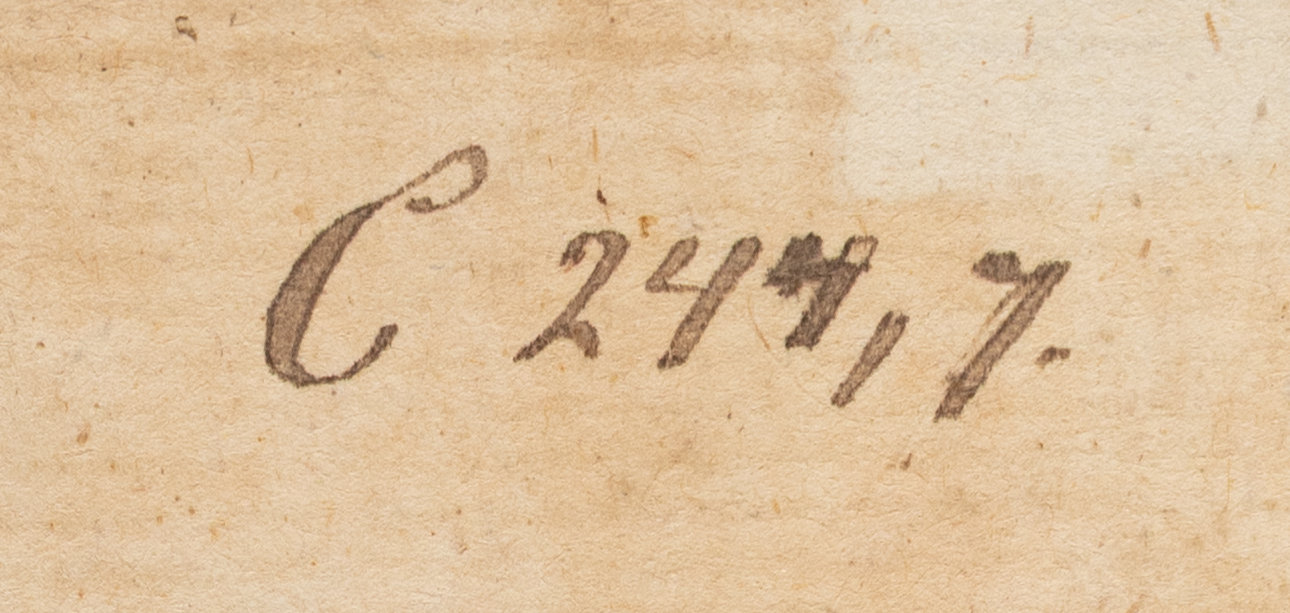 C 244, 7.